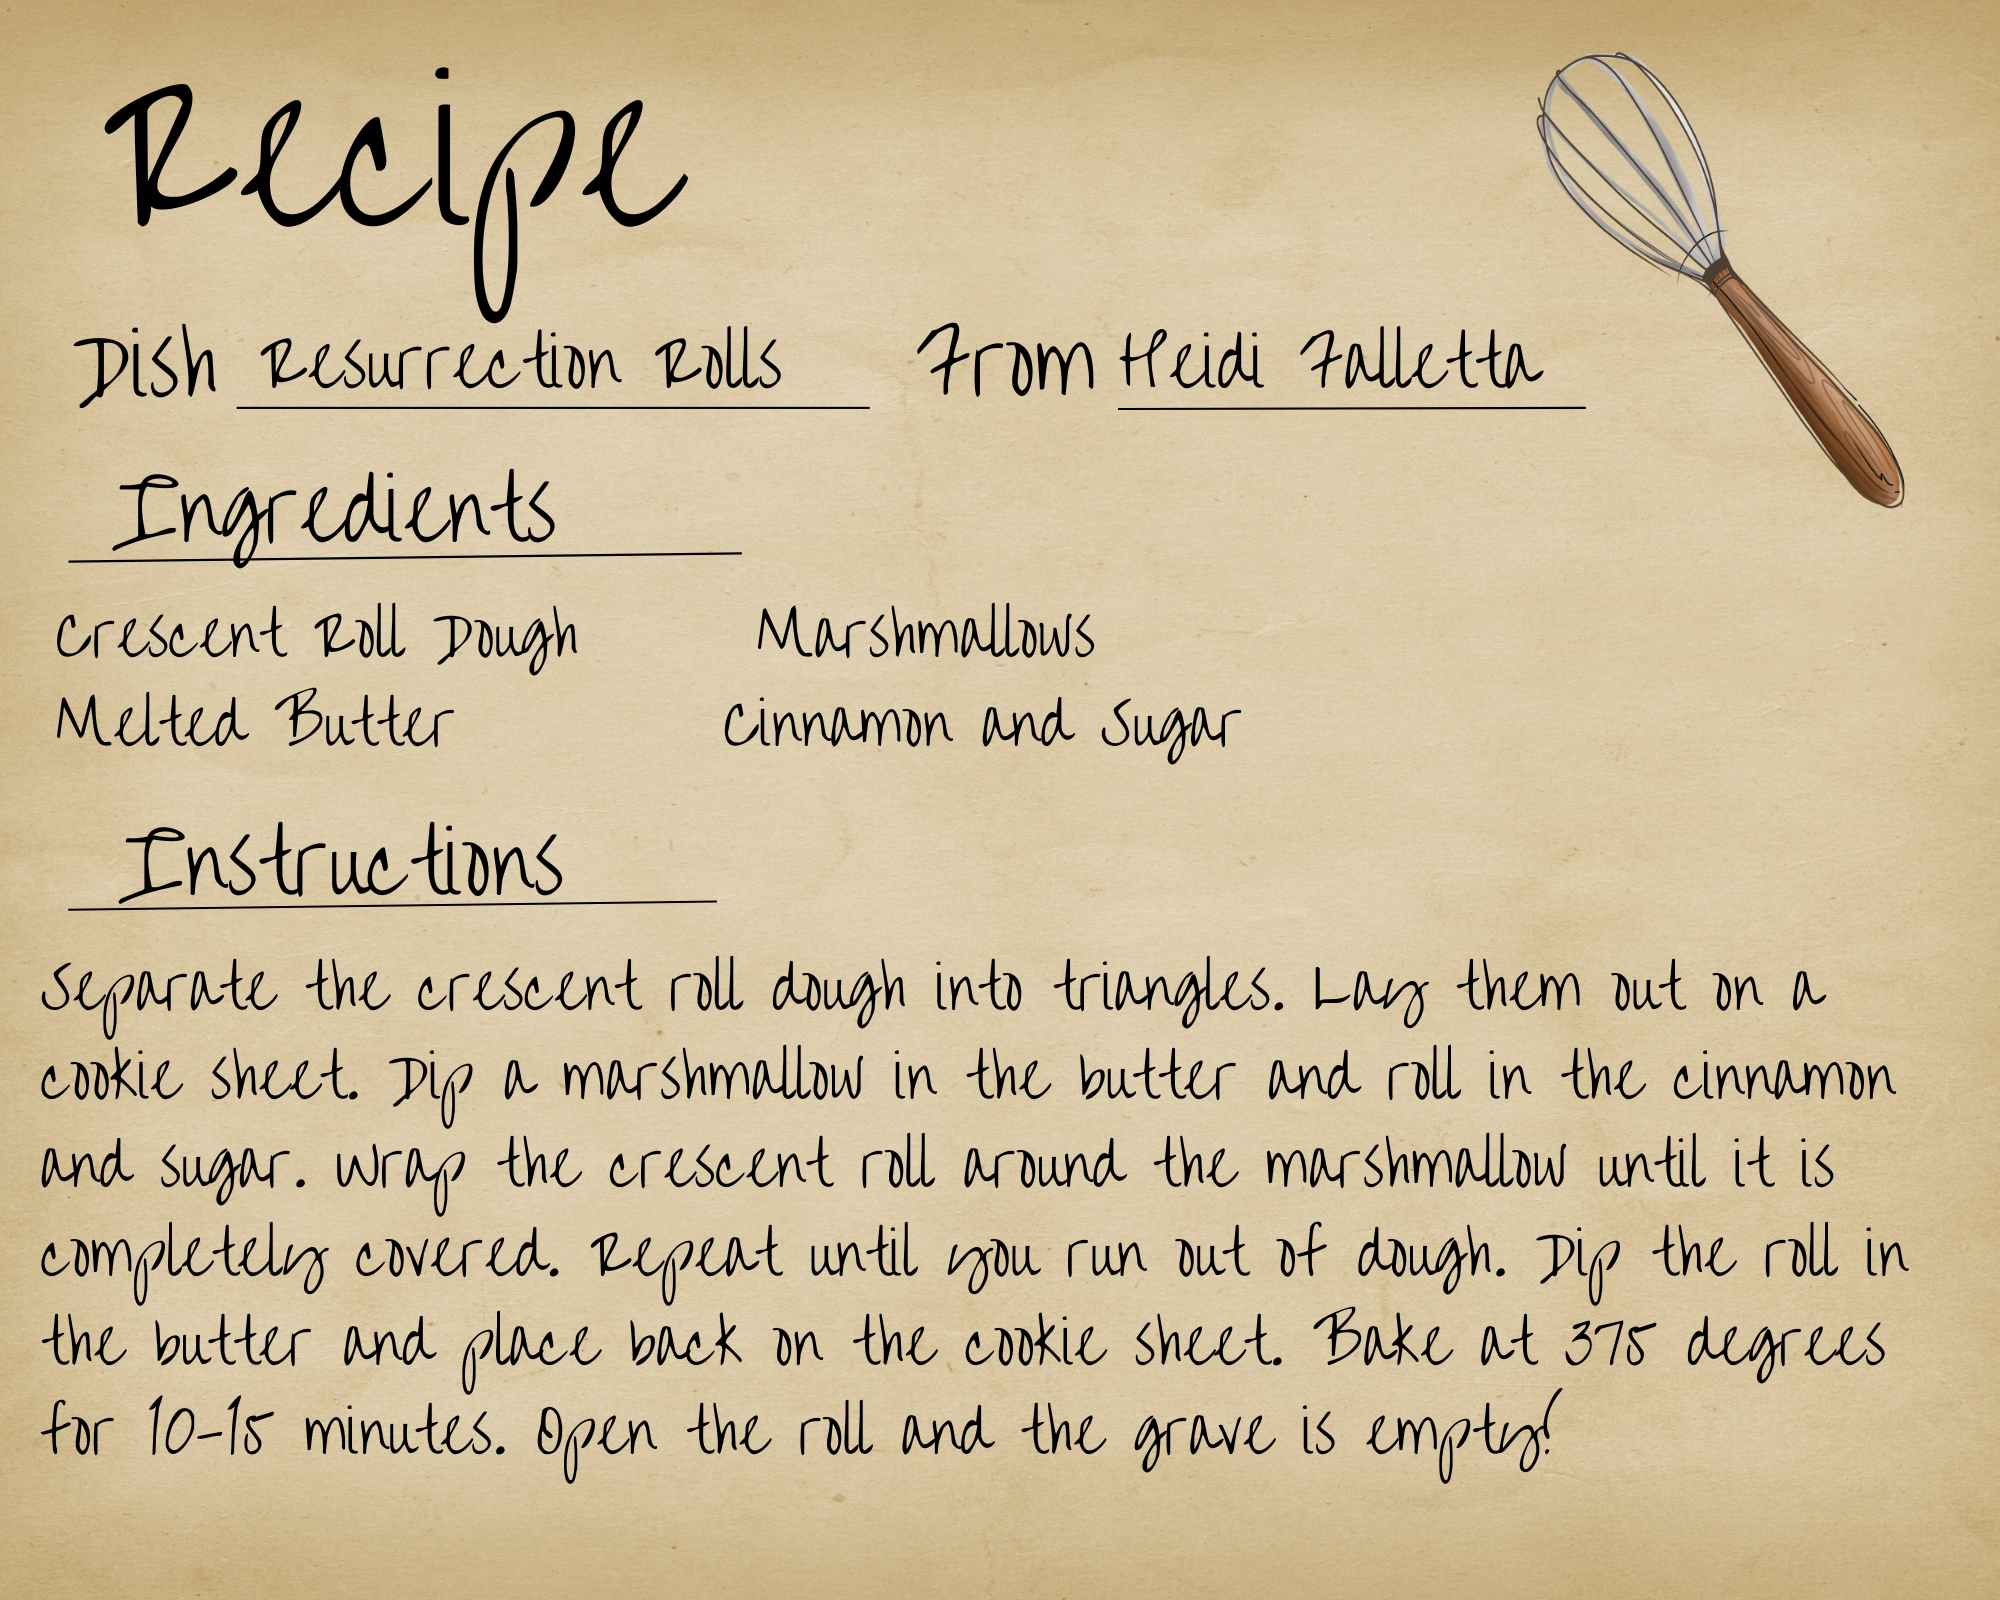 Recipe
Dish Resurrection Rolls From Heidi Falletta
Ingredients
Crescent Roll Dough Marshmallows
Melted Butter Cinnamon and Sugar
Instructions
Separate the crescent roll dough into triangles. Lay them out on a
cookie sheet. Dip a marshmallow in the butter and roll in the cinnamon
and sugar. Wrap the crescent roll around the marshmallow until it is
completely covered. Repeat until you run out of dough. Dip the roll in
the butter and place back on the cookie sheet. Bake at 375 degrees
for 10-15 minutes. Open the roll and the grave is empty!